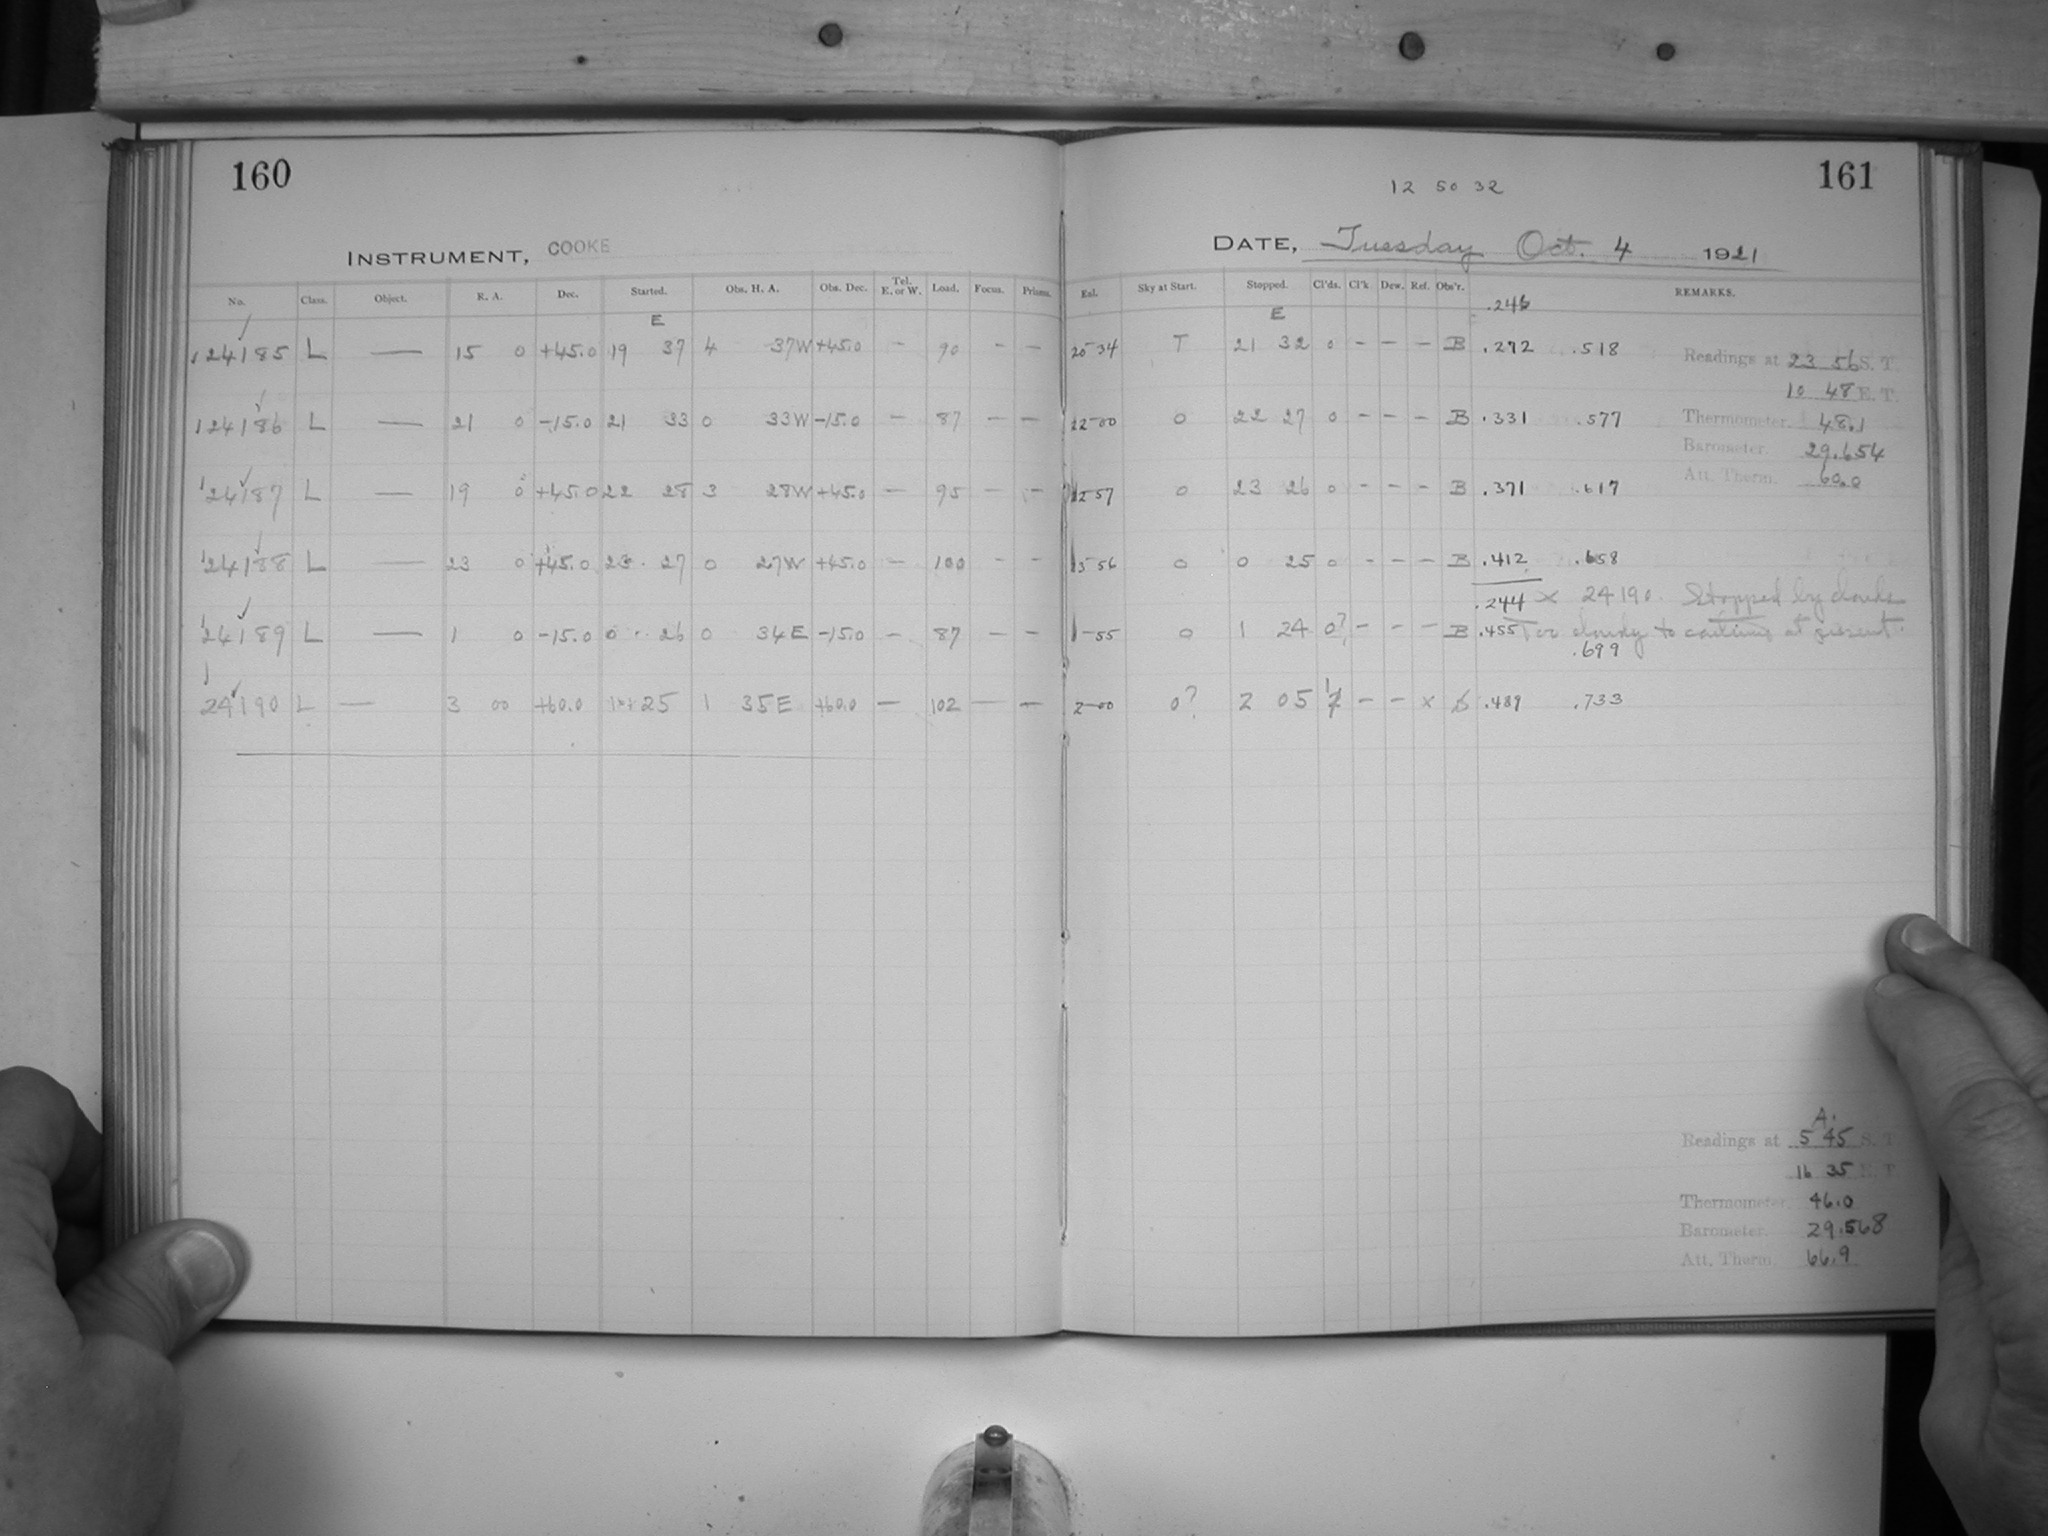 160
INSTRUMENT, COOKE
No. Class. Object. R. A. Dec. Started. Obs. H. A. Obs. Dec. Tel. E. or W. Load. Focus. Prisms.
E
124185 L — 15 0 +45.0 19 37 4 37W +45.0 – 90 – –
124186 L — 21 0 -15.0 21 33 0 33W -15.0 – 87 – –
124187 L — 19 0 +45.0 22 28 3 28W +45.0 – 95 – –
124188 L — 23 0 +45.0 23 27 0 27W +45.0 – 100 – –
124189 L — 1 0 -15.0 0 26 0 34E -15.0 – 87 – –
24190 L — 3 00 +60.0 1 25 1 35E +60.0 – 102 – –
161
12 50 32
DATE, Tuesday Oct. 4 1921
Exl. Sky at Start. Stopped. Cl'ds. Cl'k. Dew. Ref. Obs'r. REMARKS.
E .246
20-34 T 21 32 0 – – – B .272 .518
Readings at 23 56 S. T.
10 48 E. T.
22-00 0 22 27 0 – – – B .331 .577
Thermometer. 48.1
Barometer. 29.654
Att. Therm. 60.0
22-57 0 23 26 0 – – – B .371 .617
23-56 0 0 25 0 – – – B .412 .658
.244 x 24190. Stopped by clouds
0-55 0 1 24 0? – – – B .455 Too cloudy to continue at present.
.699
2-00 0? 2 05 – – x B .489 .733
A.
Readings at 5 45 S. T.
16 35 E. T.
Thermometer. 46.0
Barometer. 29.568
Att. Therm. 66.9